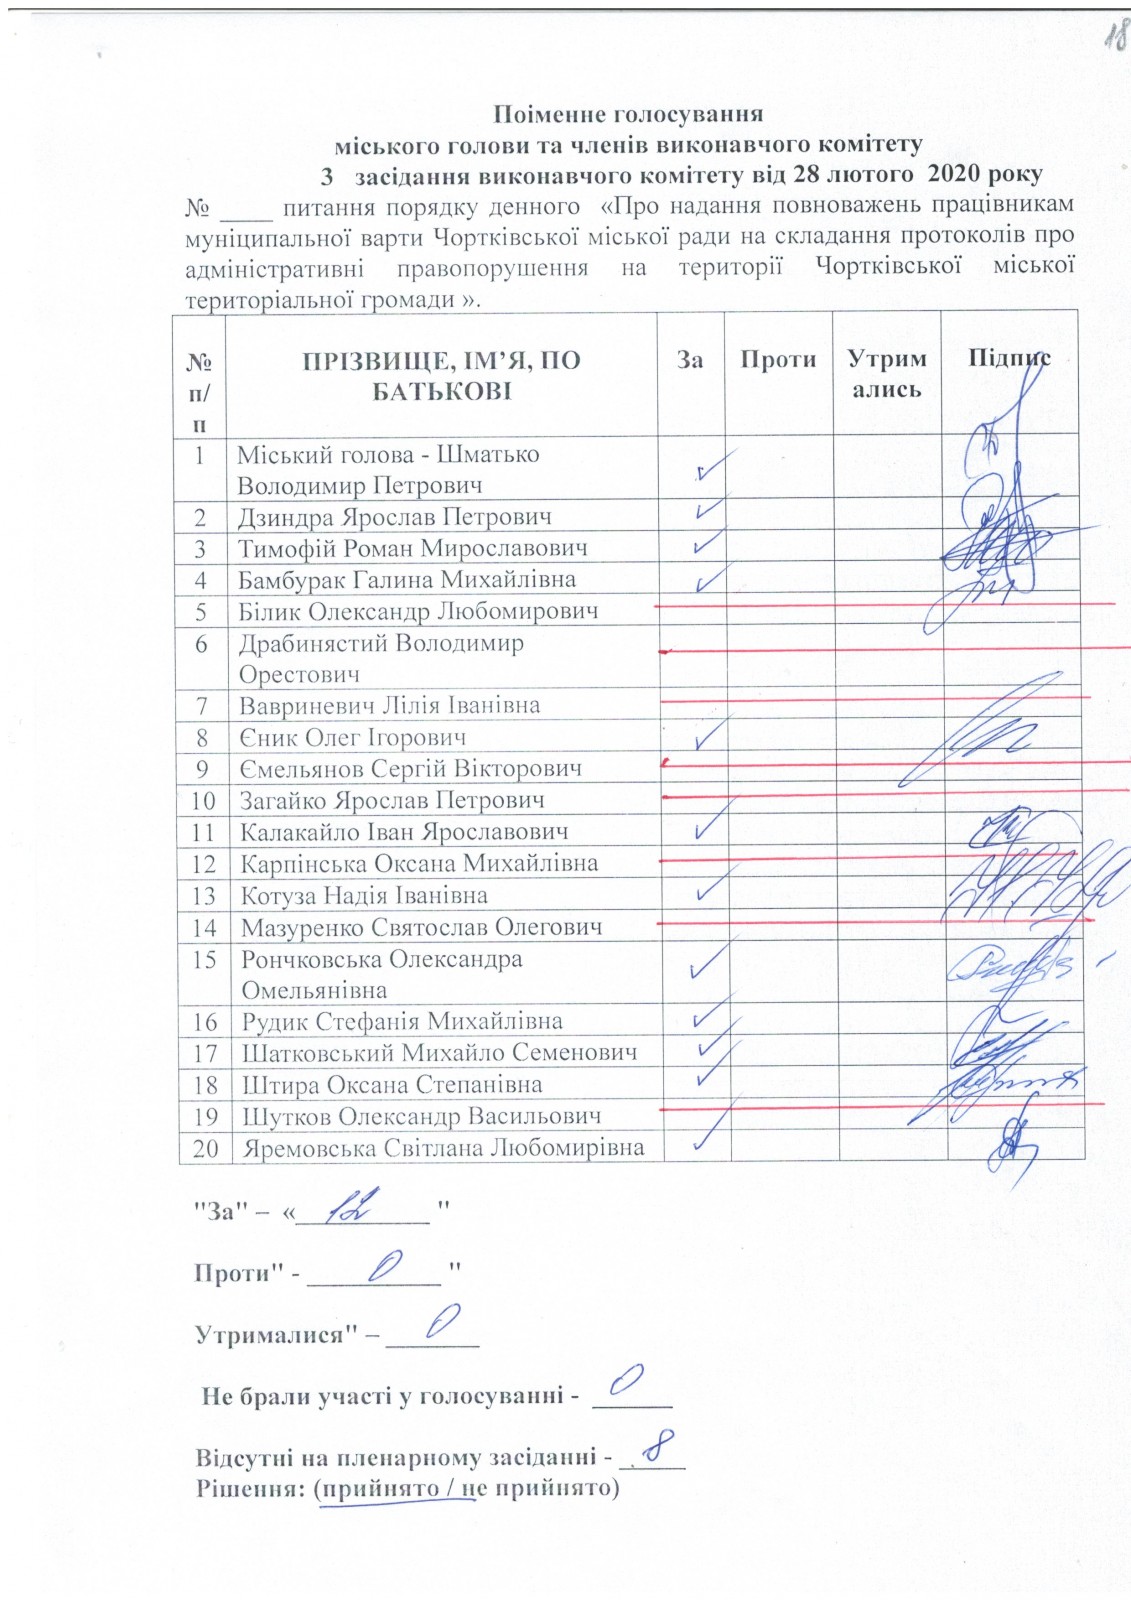 18
Поіменне голосування
міського голови та членів виконавчого комітету
3 засідання виконавчого комітету від 28 лютого 2020 року
№ ____ питання порядку денного «Про надання повноважень працівникам
муніципальної варти Чортківської міської ради на складання протоколів про
адміністративні правопорушення на території Чортківської міської
територіальної громади ».
№ п/п ПРІЗВИЩЕ, ІМ’Я, ПО БАТЬКОВІ За Проти Утримались Підпис
1 Міський голова - Шматько
Володимир Петрович ✓
2 Дзиндра Ярослав Петрович ✓
3 Тимофій Роман Мирославович ✓
4 Бамбурак Галина Михайлівна ✓
5 Білик Олександр Любомирович
6 Драбинястий Володимир
Орестович
7 Вавриневич Лілія Іванівна
8 Єник Олег Ігорович ✓
9 Ємельянов Сергій Вікторович
10 Загайко Ярослав Петрович
11 Калакайло Іван Ярославович ✓
12 Карпінська Оксана Михайлівна
13 Котуза Надія Іванівна ✓
14 Мазуренко Святослав Олегович
15 Рончковська Олександра
Омельянівна ✓
16 Рудик Стефанія Михайлівна ✓
17 Шатковський Михайло Семенович ✓
18 Штира Оксана Степанівна ✓
19 Шутков Олександр Васильович
20 Яремовська Світлана Любомирівна ✓
"За" – «__12__ "
Проти" - __0__ "
Утрималися" – __0__
Не брали участі у голосуванні - __0__
Відсутні на пленарному засіданні - __8__
Рішення: (прийнято / не прийнято)